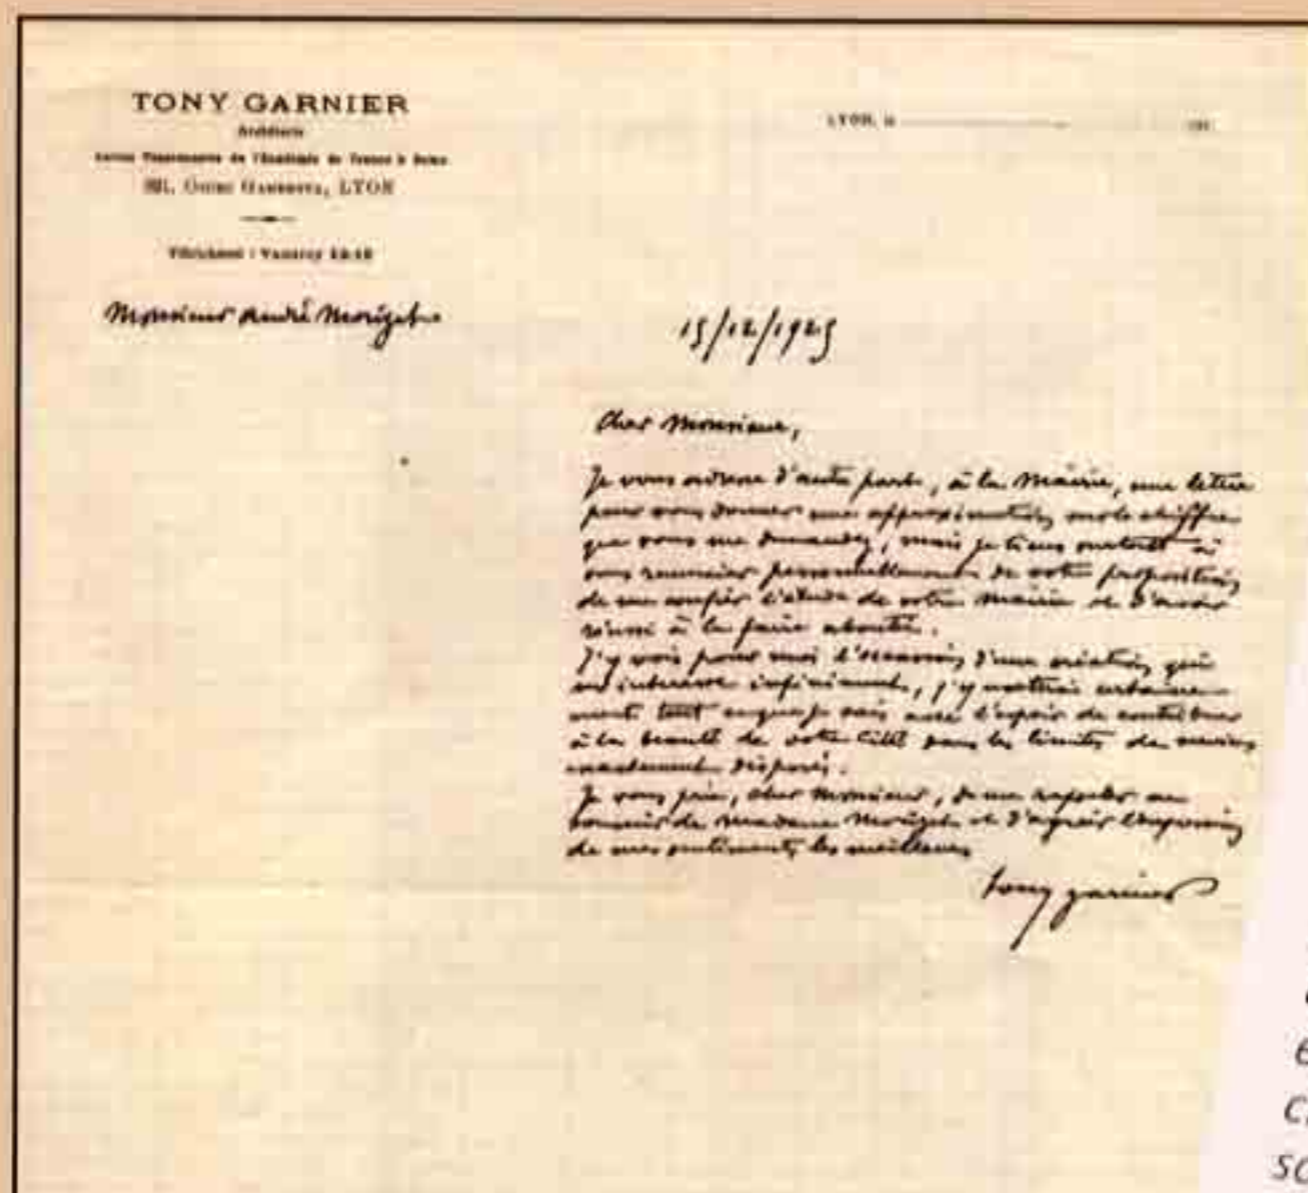 TONY GARNIER
Architecte
Ancien Pensionnaire de l'Académie de France à Rome
Cours Gambetta, LYON
Téléphone : Vaudrey
LYON, le 192
Monsieur André Morizet
15/12/1925
Cher Monsieur,
Je vous adresse d'autre part, à la Mairie, une lettre
pour vous donner une approximation sur le chiffre
que vous me demandez, mais je tiens surtout à
vous remercier personnellement de votre proposition
de me confier l'étude de votre Mairie et d'avoir
réussi à la faire aboutir.
J'y vois pour moi l'occasion d'une création qui
m'intéresse infiniment, j'y mettrai certaine-
ment tout ce que je sais avec l'espoir de contribuer
à la beauté de votre Ville dans les limites de moyens
exactement disposés.
Je vous prie, cher Monsieur, de me rappeler au
bonneur de Madame Morizet et d'agréer l'expression
de mes sentiments les meilleurs
tony garnier